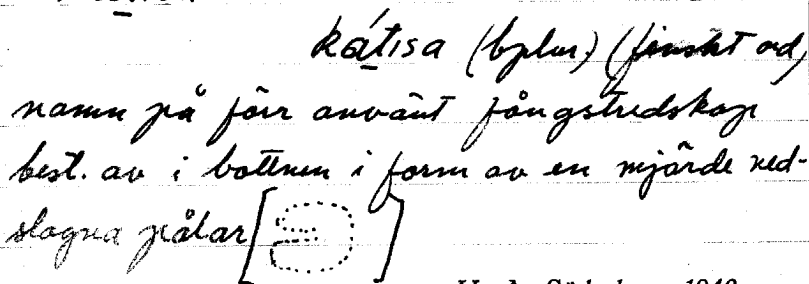 kátisa (bplur) (finskt ord)
namn på förr använt fångstredskap
best. av i bottnen i form av en mjärde ned-
slagna pålar [ ]